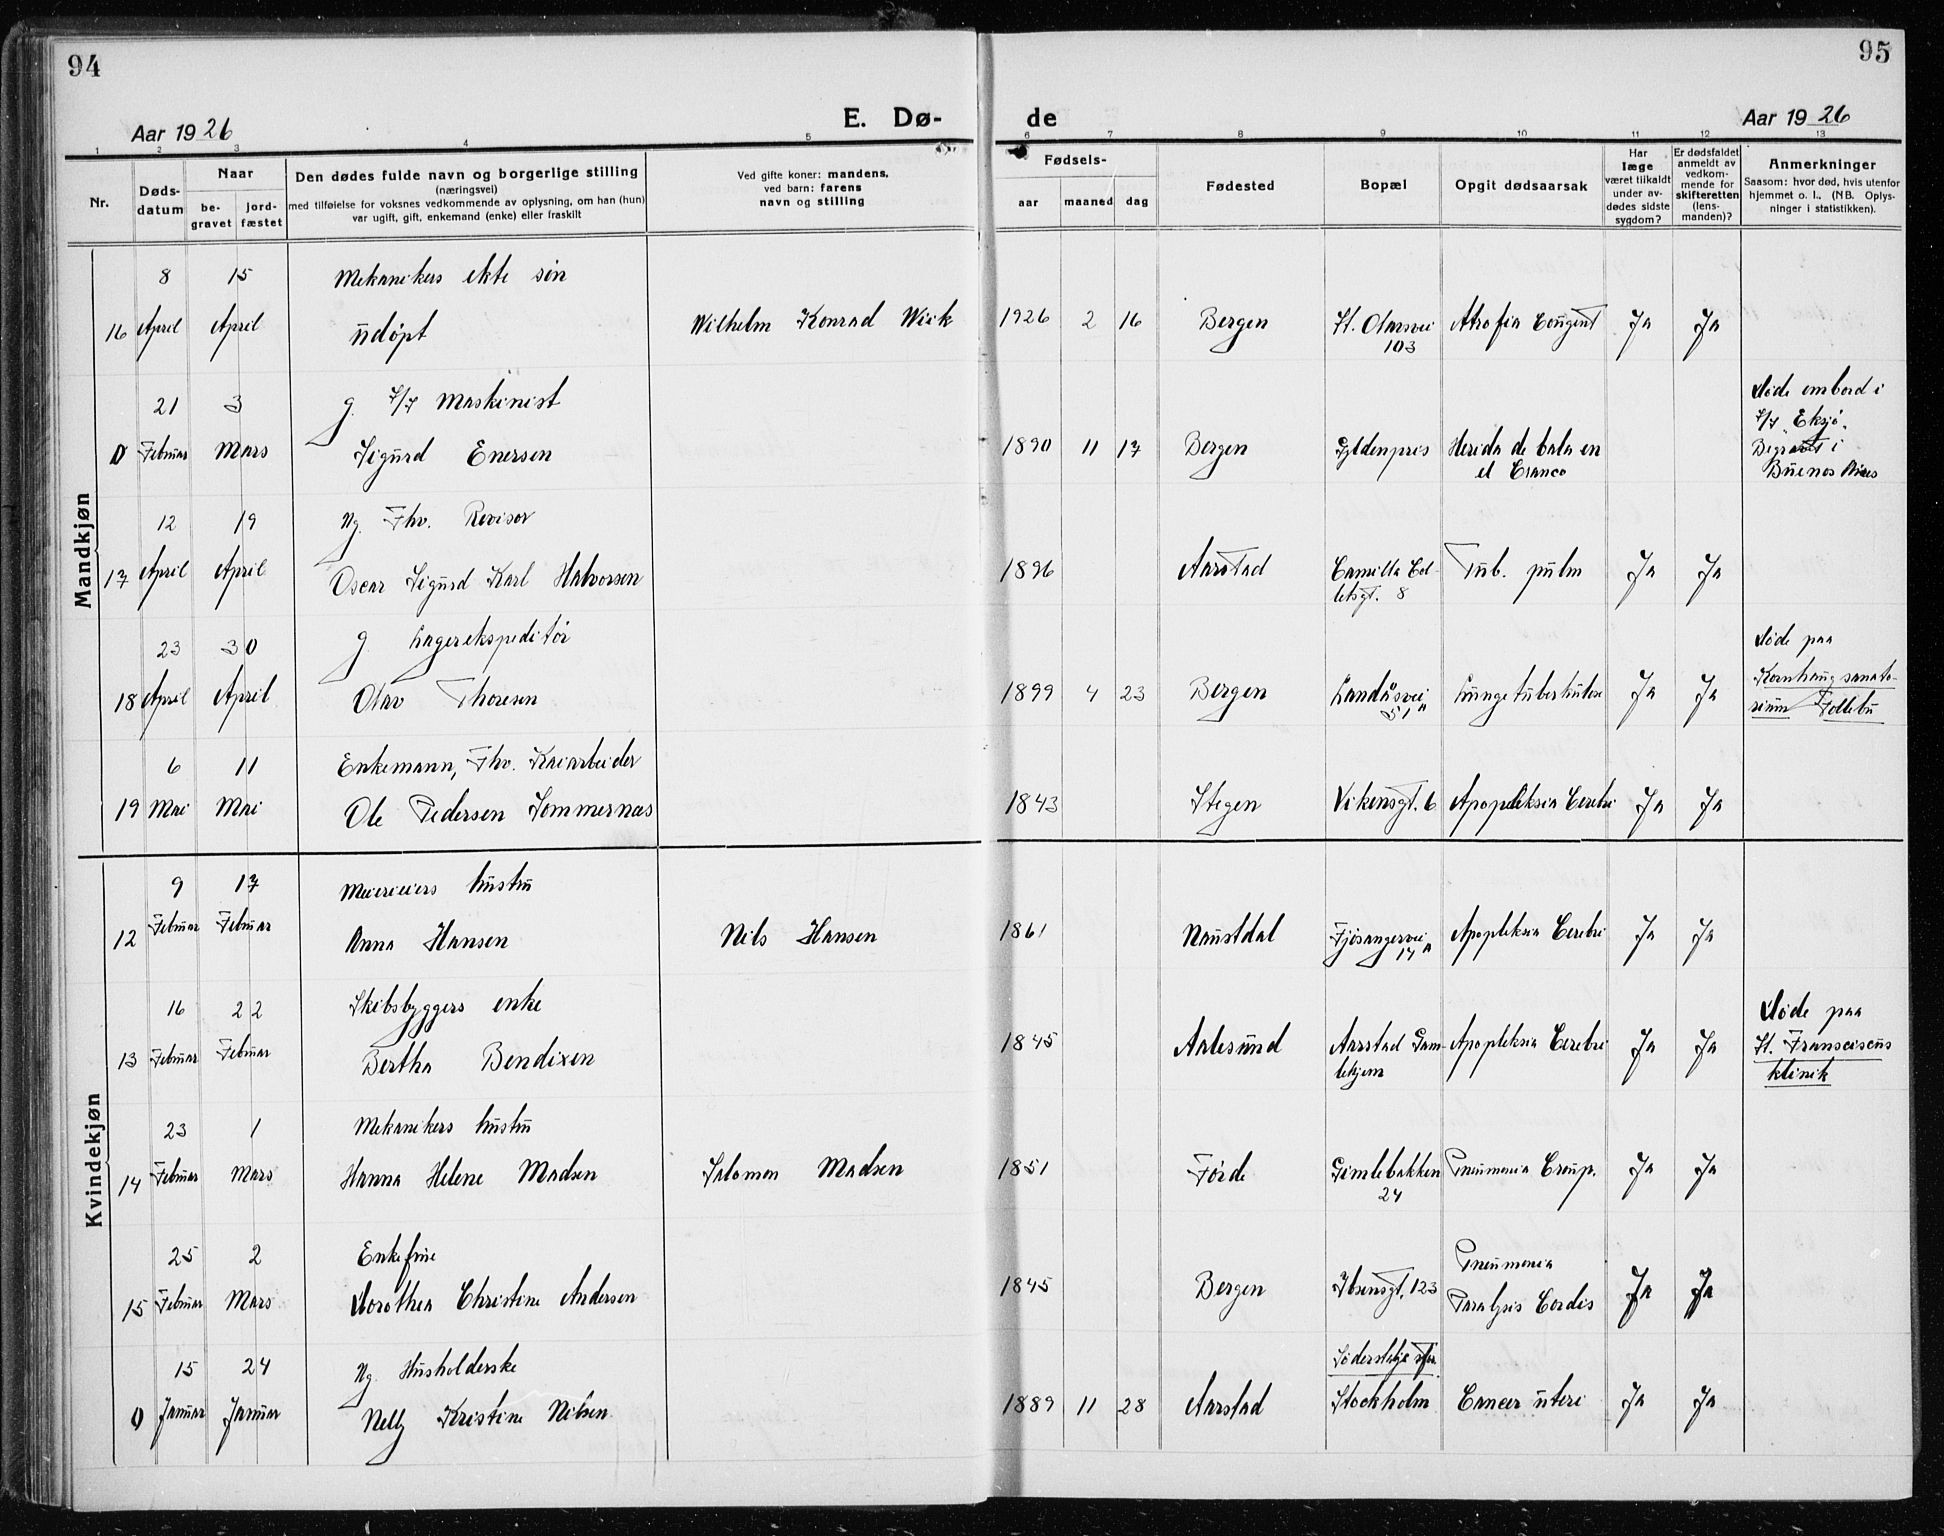 94
95
Aar 1926
E. Dø-
de
Aar 1926
1 2 3 4 5 6 7 8 9 10 11 12 13
Nr.
Døds-
datum
Naar
be-
gravet
jord-
fæstet
Den dødes fulde navn og borgerlige stilling
(næringsvei)
med tilføielse for voksnes vedkommende av oplysning, om han (hun)
var ugift, gift, enkemand (enke) eller fraskilt
Ved gifte koner: mandens,
ved barn: farens
navn og stilling
Fødsels-
aar maaned dag
Fødested
Bopæl
Opgit dødsaarsak
Har
læge
været tilkaldt
under av-
dødes sidste
sygdom?
Er dødsfaldet
anmeldt av
vedkom-
mende for
skifteretten
(lens-
manden)?
Anmerkninger
Saasom: hvor død, hvis utenfor
hjemmet o. l.. (NB. Oplys-
ninger i statistikken).
Mandkjøn
8 15 Mekanikers ekte søn
16 April April udøpt Wilhelm Konrad Wiik 1926 2 16 Bergen St. Olavsvei Atrofia Congent Ja Ja
103
21 3 g. S/S Maskinist
0 Februar Mars Sigurd Enersen 1890 11 17 Bergen Gyldenpris Herida de bala en
el Cranco
Døde ombord i
S/S „Eksjø„
Begravet i
Buenos Aires
12 19 Ug. Fhv. Revisor
17 April April Oscar Sigurd Karl Halvorsen 1896 Aarstad Camilla Col- Tub. pulm Ja Ja
letsgt. 8
23 30 g. Lagerekspeditør
18 April April Olav Thoresen 1899 4 23 Bergen Landåsvei Lungetuberkulose Ja Ja
51 a
Døde paa
Kornhaug sanato-
rium Follebu
6 11 Enkemann, Fhv. Kaiarbeider
19 Mai Mai Ole Pedersen Sommernas 1843 Stegen Vikensgt. 6 Apopleksia Cerebri Ja Ja
Kvindekjøn
9 17 Meiereiers hustru
12 Februar Februar Anna Hansen Nils Hansen 1861 Naustdal Fjøsangervei Apopleksia Cerebri Ja Ja
17 a
16 22 Skibsbyggers enke
13 Februar Februar Bertha Bendixen 1845 Aalesund Aarstad Gam- Apopleksia Cerebri Ja Ja
lehjem
Døde paa
St. Franseiscus
klinik
23 1 Mekanikers hustru
14 Februar Mars Hanna Helene Madsen Salomon Madsen 1851 Førde Gimlebakken Pneumonia Croup. Ja Ja
24
25 2 Enkefrue Pneumonia
15 Februar Mars Dorothea Christine Andersen 1845 Bergen Ibsensgt. 123 Paralysis Cordis Ja Ja
15 24 Ug. Husholderske
0 Januar Januar Nelly Kristine Nilsen 1889 11 28 Aarstad Stockholm Cancer uteri Ja Ja